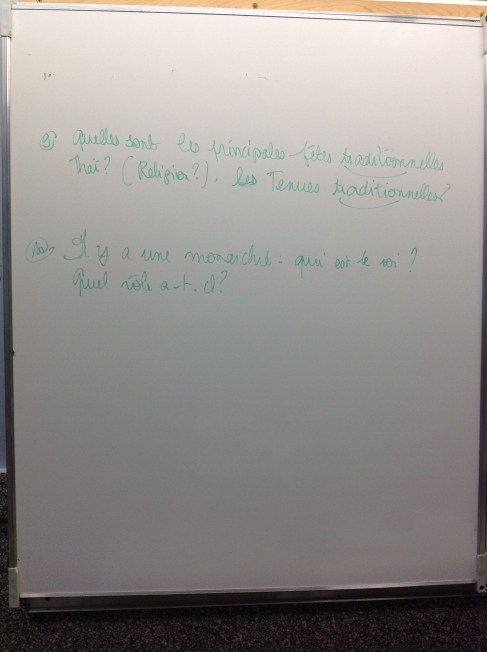 9) Quelles sont les principales fêtes traditionnelles
Thaï? (Religion?). Les Tenues traditionnelles?
10) Il y a une monarchie : qui est le roi ?
Quel rôle a-t-il?